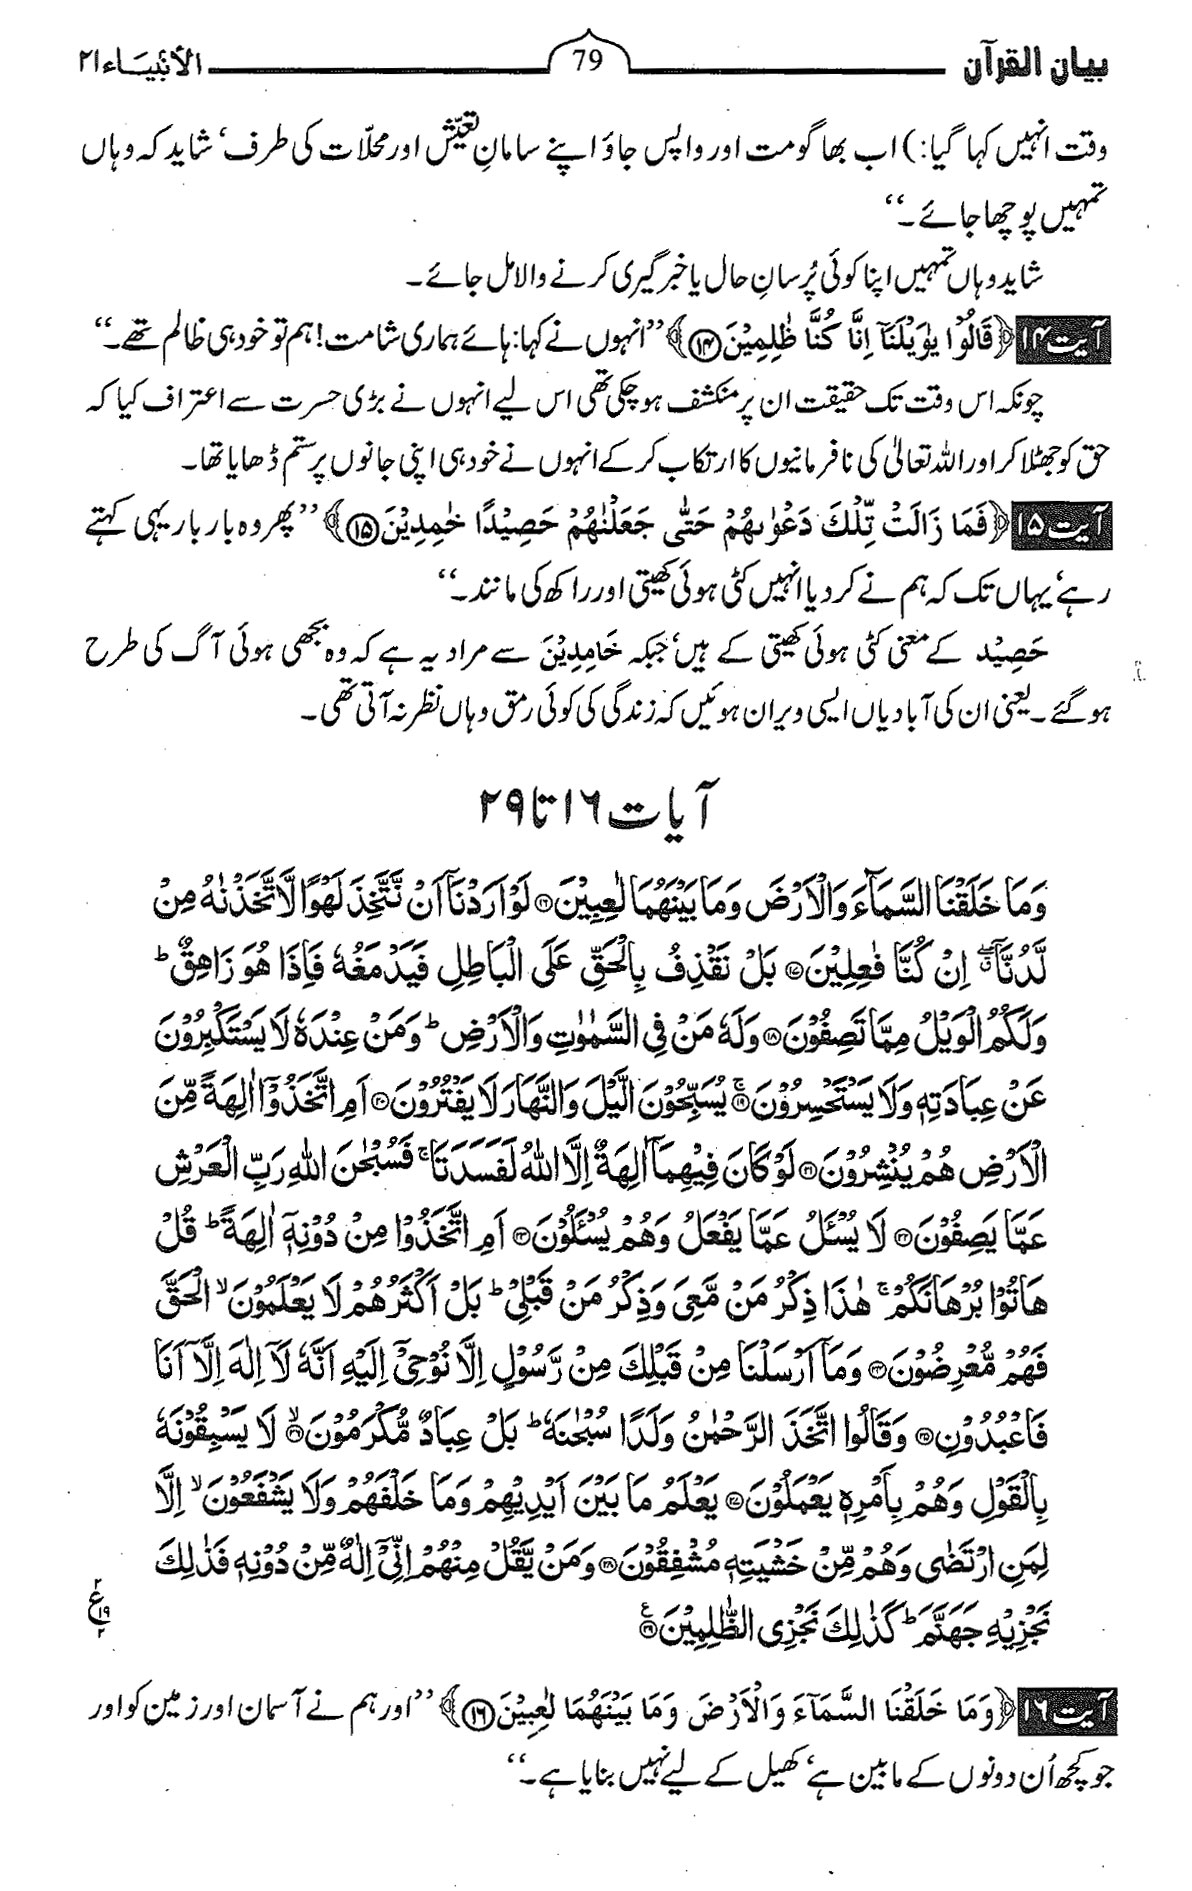 بیان القرآن 79 الأنبیاء ۲۱
وقت انہیں کہا گیا:) اب بھاگو مت اور واپس جاؤ اپنے سامانِ تعیّش اور محلّات کی طرف‘ شاید کہ وہاں
تمہیں پوچھا جائے۔‘‘
شاید وہاں تمہیں اپنا کوئی پُرسانِ حال یا خبر گیری کرنے والا مل جائے۔
آیت ۱۴ ﴿قَالُوْا یٰوَیْلَنَاۤ اِنَّا كُنَّا ظٰلِمِیْنَ ⑭﴾ ’’انہوں نے کہا: ہائے ہماری شامت! ہم تو خود ہی ظالم تھے۔‘‘
چونکہ اس وقت تک حقیقت ان پر منکشف ہو چکی تھی اس لیے انہوں نے بڑی حسرت سے اعتراف کیا کہ
حق کو جھٹلا کر اور اللہ تعالیٰ کی نافرمانیوں کا ارتکاب کر کے انہوں نے خود ہی اپنی جانوں پر ستم ڈھایا تھا۔
آیت ۱۵ ﴿فَمَا زَالَتْ تِّلْكَ دَعْوٰىهُمْ حَتّٰى جَعَلْنٰهُمْ حَصِیْدًا خٰمِدِیْنَ ⑮﴾ ’’پھر وہ بار بار یہی کہتے
رہے‘ یہاں تک کہ ہم نے کر دیا انہیں کٹی ہوئی کھیتی اور راکھ کی مانند۔‘‘
حَصِیْد کے معنی کٹی ہوئی کھیتی کے ہیں‘ جبکہ خَامِدِیْنَ سے مراد یہ ہے کہ وہ بجھی ہوئی آگ کی طرح
ہو گئے۔ یعنی ان کی آبادیاں ایسی ویران ہوئیں کہ زندگی کی کوئی رمق وہاں نظر نہ آتی تھی۔
آیات ۱۶ تا ۲۹
وَمَا خَلَقْنَا السَّمَآءَ وَالْاَرْضَ وَمَا بَیْنَهُمَا لٰعِبِیْنَ ⑯ لَوْ اَرَدْنَاۤ اَنْ نَّتَّخِذَ لَهْوًا لَّاتَّخَذْنٰهُ مِنْ
لَّدُنَّاۤ ۖۗ اِنْ كُنَّا فٰعِلِیْنَ ⑰ بَلْ نَقْذِفُ بِالْحَقِّ عَلَى الْبَاطِلِ فَیَدْمَغُهٗ فَاِذَا هُوَ زَاهِقٌ ؕ
وَلَكُمُ الْوَیْلُ مِمَّا تَصِفُوْنَ ⑱ وَلَهٗ مَنْ فِی السَّمٰوٰتِ وَالْاَرْضِ ؕ وَمَنْ عِنْدَهٗ لَا یَسْتَكْبِرُوْنَ
عَنْ عِبَادَتِهٖ وَلَا یَسْتَحْسِرُوْنَ ۚ⑲ یُسَبِّحُوْنَ الَّیْلَ وَالنَّهَارَ لَا یَفْتُرُوْنَ ⑳ اَمِ اتَّخَذُوْۤا اٰلِهَةً مِّنَ
الْاَرْضِ هُمْ یُنْشِرُوْنَ ㉑ لَوْ كَانَ فِیْهِمَاۤ اٰلِهَةٌ اِلَّا اللّٰهُ لَفَسَدَتَا ۚ فَسُبْحٰنَ اللّٰهِ رَبِّ الْعَرْشِ
عَمَّا یَصِفُوْنَ ㉒ لَا یُسْـَٔلُ عَمَّا یَفْعَلُ وَهُمْ یُسْـَٔلُوْنَ ㉓ اَمِ اتَّخَذُوْا مِنْ دُوْنِهٖۤ اٰلِهَةً ؕ قُلْ
هَاتُوْا بُرْهَانَكُمْ ۚ هٰذَا ذِكْرُ مَنْ مَّعِیَ وَذِكْرُ مَنْ قَبْلِیْ ؕ بَلْ اَكْثَرُهُمْ لَا یَعْلَمُوْنَ ۙ الْحَقَّ
فَهُمْ مُّعْرِضُوْنَ ㉔ وَمَاۤ اَرْسَلْنَا مِنْ قَبْلِكَ مِنْ رَّسُوْلٍ اِلَّا نُوْحِیْۤ اِلَیْهِ اَنَّهٗ لَاۤ اِلٰهَ اِلَّاۤ اَنَا
فَاعْبُدُوْنِ ㉕ وَقَالُوا اتَّخَذَ الرَّحْمٰنُ وَلَدًا سُبْحٰنَهٗ ؕ بَلْ عِبَادٌ مُّكْرَمُوْنَ ۙ㉖ لَا یَسْبِقُوْنَهٗ
بِالْقَوْلِ وَهُمْ بِاَمْرِهٖ یَعْمَلُوْنَ ㉗ یَعْلَمُ مَا بَیْنَ اَیْدِیْهِمْ وَمَا خَلْفَهُمْ وَلَا یَشْفَعُوْنَ ۙ اِلَّا
لِمَنِ ارْتَضٰی وَهُمْ مِّنْ خَشْیَتِهٖ مُشْفِقُوْنَ ㉘ وَمَنْ یَّقُلْ مِنْهُمْ اِنِّیْۤ اِلٰهٌ مِّنْ دُوْنِهٖ فَذٰلِكَ
نَجْزِیْهِ جَهَنَّمَ ؕ كَذٰلِكَ نَجْزِی الظّٰلِمِیْنَ ㉙ع
۲ ع ۱۹ ۲
آیت ۱۶ ﴿وَمَا خَلَقْنَا السَّمَآءَ وَالْاَرْضَ وَمَا بَیْنَهُمَا لٰعِبِیْنَ ⑯﴾ ’’اور ہم نے آسمان اور زمین کو اور
جو کچھ اُن دونوں کے مابین ہے‘ کھیل کے لیے نہیں بنایا ہے۔‘‘